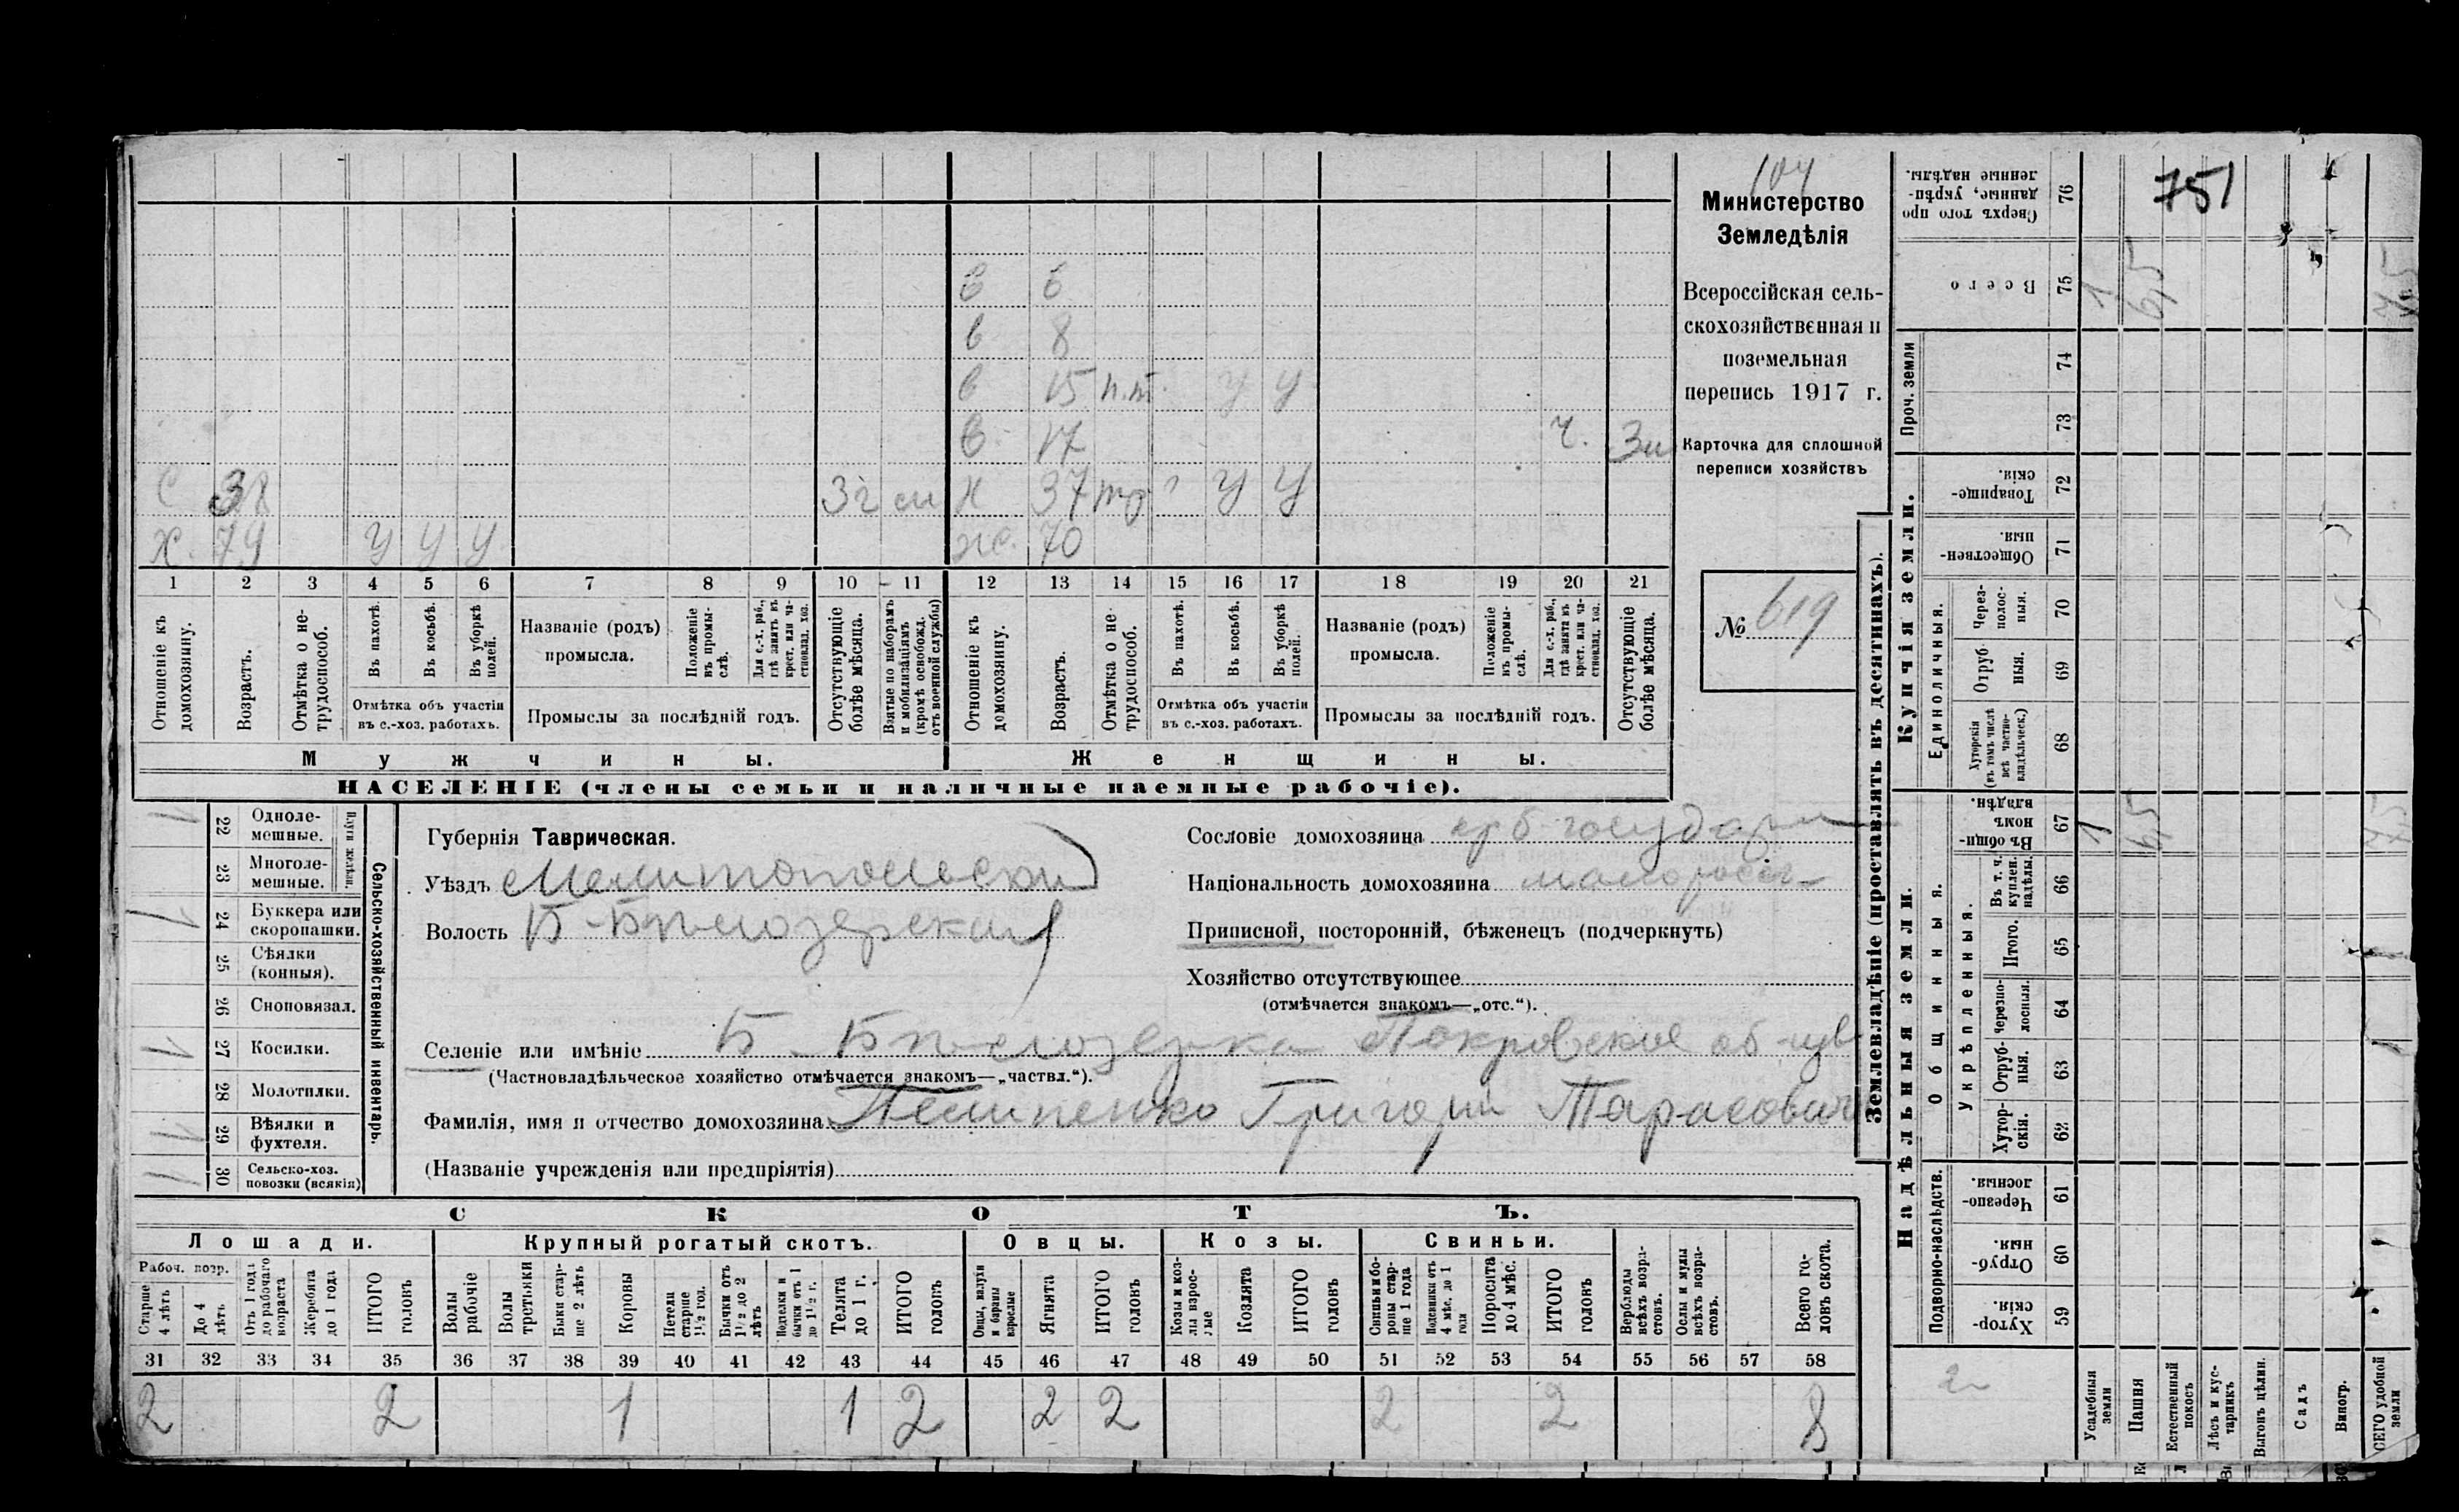 104
Министерство
Земледѣлія
Всероссійская сель-
скохозяйственная и
поземельная
перепись 1917 г.
Карточка для сплошной
переписи хозяйствъ
№ 619
в 6
в 8
в 15 п.т. У У
в 17 ч. 3м
С 38 3г см Х 37 У У
Х. 79 У У У Ж. 70
1 2 3 4 5 6 7 8 9 10 11 12 13 14 15 16 17 18 19 20 21
Отношеніе къ домохозяину.
Возрастъ.
Отмѣтка о не-трудоспособ.
Въ пахотѣ.
Въ косьбѣ.
Въ уборкѣ полей.
Отмѣтка объ участіи въ с.-хоз. работахъ.
Названіе (родъ) промысла.
Положеніе въ промы-слѣ.
Для с.-х. раб., гдѣ занятъ въ крест. или ча-стновлад. хоз.
Промыслы за послѣдній годъ.
Отсутствующіе болѣе мѣсяца.
Взятые по наборамъ и мобилизаціямъ (кромѣ освобожд. отъ военной службы)
Отношеніе къ домохозяину.
Возрастъ.
Отмѣтка о не-трудоспособ.
Въ пахотѣ.
Въ косьбѣ.
Въ уборкѣ полей.
Отмѣтка объ участіи въ с.-хоз. работахъ.
Названіе (родъ) промысла.
Положеніе въ промы-слѣ.
Для с.-х. раб., гдѣ занята въ крест. или ча-стновлад. хоз.
Промыслы за послѣдній годъ.
Отсутствующіе болѣе мѣсяца.
Мужчины. Женщины.
НАСЕЛЕНІЕ (члены семьи и наличные наемные рабочіе).
Сельско-хозяйственный инвентарь.
Плуги желѣзн.
1 22 Одноле-мешные.
23 Многоле-мешные.
1 24 Буккера или скоропашки.
25 Сѣялки (конныя).
26 Сноповязал.
1 27 Косилки.
28 Молотилки.
1 29 Вѣялки и фухтеля.
1 30 Сельско-хоз. повозки (всякія)
Губернія Таврическая.
Уѣздъ Мелитопольскій
Волость Б-Бѣлозерская
Сословіе домохозяина
Національность домохозяина малоросс
Приписной, посторонній, бѣженецъ (подчеркнуть)
Хозяйство отсутствующее
(отмѣчается знакомъ—„отс.“).
Селеніе или имѣніе Б-Бѣлозерка Покровское об-щв
(Частновладѣльческое хозяйство отмѣчается знакомъ—„частвл.“).
Фамилія, имя и отчество домохозяина Пелипенко Григорій Тарасович
(Названіе учрежденія или предпріятія)
СКОТЪ.
Лошади. Крупный рогатый скотъ. Овцы. Козы. Свиньи.
Рабоч. возр.
Старше 4 лѣтъ
До 4 лѣтъ
Отъ 1 года до рабочаго возраста
Жеребята до 1 года
ИТОГО головъ
Волы рабочіе
Волы третьяки
Быки стар-ше 2 лѣтъ
Коровы
Нетели старше 1½ год.
Бычки отъ 1½ до 2 лѣтъ
Подтелки и бычки отъ 1 до 1½ г.
Телята до 1 г.
ИТОГО головъ
Овцы, валухи и бараны взрослые
Ягнята
ИТОГО головъ
Козы и коз-лы взрос-лые
Козлята
ИТОГО головъ
Свиньи и бо-ровы стар-ше 1 года
Подсвинки отъ 4 мѣс. до 1 года
Поросята до 4 мѣс.
ИТОГО головъ
Верблюды всѣхъ возра-стовъ.
Ослы и мулы всѣхъ возра-стовъ.
Всего го-ловъ скота.
31 32 33 34 35 36 37 38 39 40 41 42 43 44 45 46 47 48 49 50 51 52 53 54 55 56 57 58
2 2 1 1 2 2 2 2 2 8
Землевладѣніе (проставлять въ десятинахъ).
Купчія земли.
Надѣльныя земли.
Проч. земли
Единоличныя.
Общинныя.
Укрѣпленныя.
Подворно-наслѣдств.
Сверхъ того про данные, укрѣп-ленные надѣлы. 76
751
Всего 75 1 6,5 7,5
74
73
Товарище-скія. 72
Обществен-ныя. 71
Через-полос-ныя. 70
Отруб-ныя. 69
Хуторскія (въ томъ числѣ всѣ частно-владѣльческ.) 68
Въ общин-номъ владѣн. 67 1 6,5 7,5
Въ т. ч. куплен. надѣлы. 66
Итого. 65
Черезпо-лосныя. 64
Отруб-ныя. 63
Хутор-скія. 62
Черезпо-лосныя. 61
Отруб-ныя. 60
Хутор-скія. 59
2
Усадебныя земли
Пашня
Естественный покосъ
Лѣсъ и кус-тарникъ
Выгонъ цѣлин.
Садъ
Виногр.
ВСЕГО удобной земли